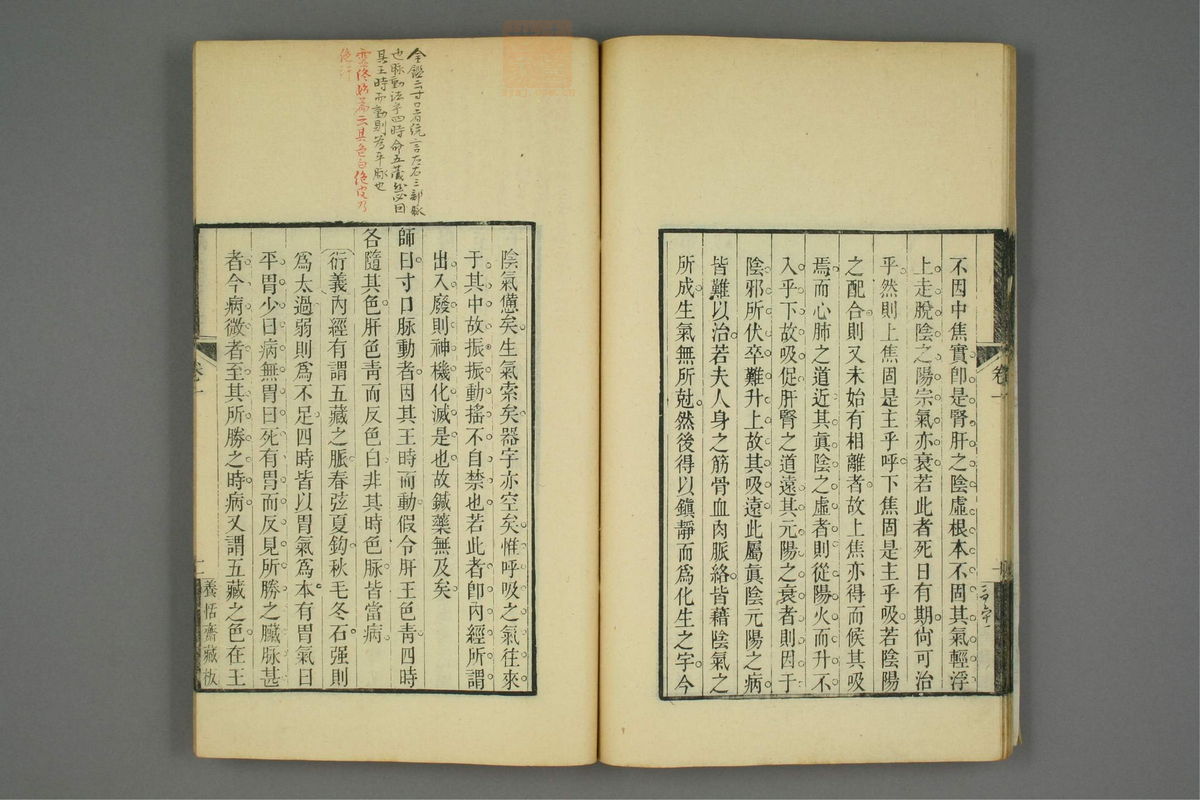 不因中焦實卽是腎肝之陰虛根本不固其氣輕浮
上走脫陰之陽宗氣亦衰若此者死日有期尙可治
乎然則上焦固是主乎呼下焦固是主乎吸若陰陽
之配合則又未始有相離者故上焦亦得而候其吸
焉而心肺之道近其眞陰之虛者則從陽火而升不
入乎下故吸促肝腎之道遠其元陽之衰者則因于
陰邪所伏卒難升上故其吸遠此屬眞陰元陽之病
皆難以治若夫人身之筋骨血肉脈絡皆藉陰氣之
所成生氣無所尅然後得以鎭靜而爲化生之宇今
卷一
陰氣憊矣生氣索矣器宇亦空矣惟呼吸之氣往來
于其中故振振動搖不自禁也若此者卽內經所謂
出入廢則神機化滅是也故鍼藥無及矣
師曰寸口脉動者因其王時而動假令肝王色靑四時
各隨其色肝色靑而反色白非其時色脉皆當病
衍義內經有謂五藏之脈春弦夏鈎秋毛冬石强則
爲太過弱則爲不足四時皆以胃氣爲本有胃氣曰
平胃少曰病無胃曰死有胃而反見所勝之臟脉甚
者今病微者至其所勝之時病又謂五藏之色在王
卷一
二
養恬齋藏板
金鑑云寸口者統言左右三部脉
也脉動法乎四時命五藏然必因
其王時而動則爲平脉也
云其色白絶皮乃